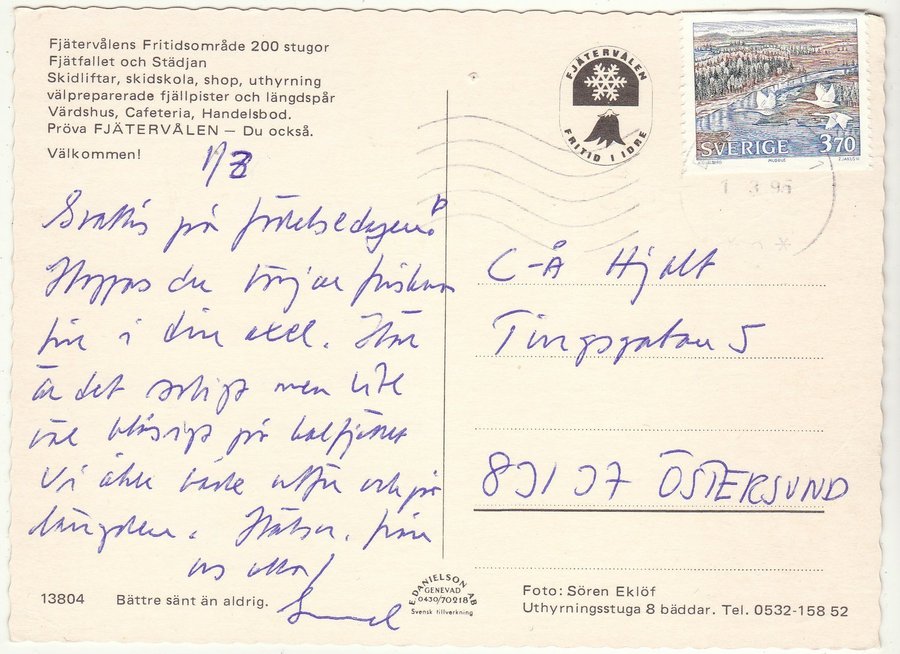 Fjätervålens Fritidsområde 200 stugor
Fjätfallet och Städjan
Skidliftar, skidskola, shop, uthyrning
välpreparerade fjällpister och längdspår
Värdshus, Cafeteria, Handelsbod.
Pröva FJÄTERVÅLEN – Du också.
Välkommen!
Grattis på födelsedagen!
Hoppas du börjar friskna
fin i din axel. Här
är det soligt men lite
väl blåsigt på kalfjället
Vi åker både utför och på
längden. Hälsn. från
oss alla!
13804
Bättre sänt än aldrig.
E. DANIELSON AB
GENEVAD
0430/70218
Svensk tillverkning
FJÄTERVÅLEN
FRITID I IDRE
SVERIGE 370
1 3 95
C-Å Hjalt
Tingsgatan 5
831 37 ÖSTERSUND
Foto: Sören Eklöf
Uthyrningsstuga 8 bäddar. Tel. 0532-158 52